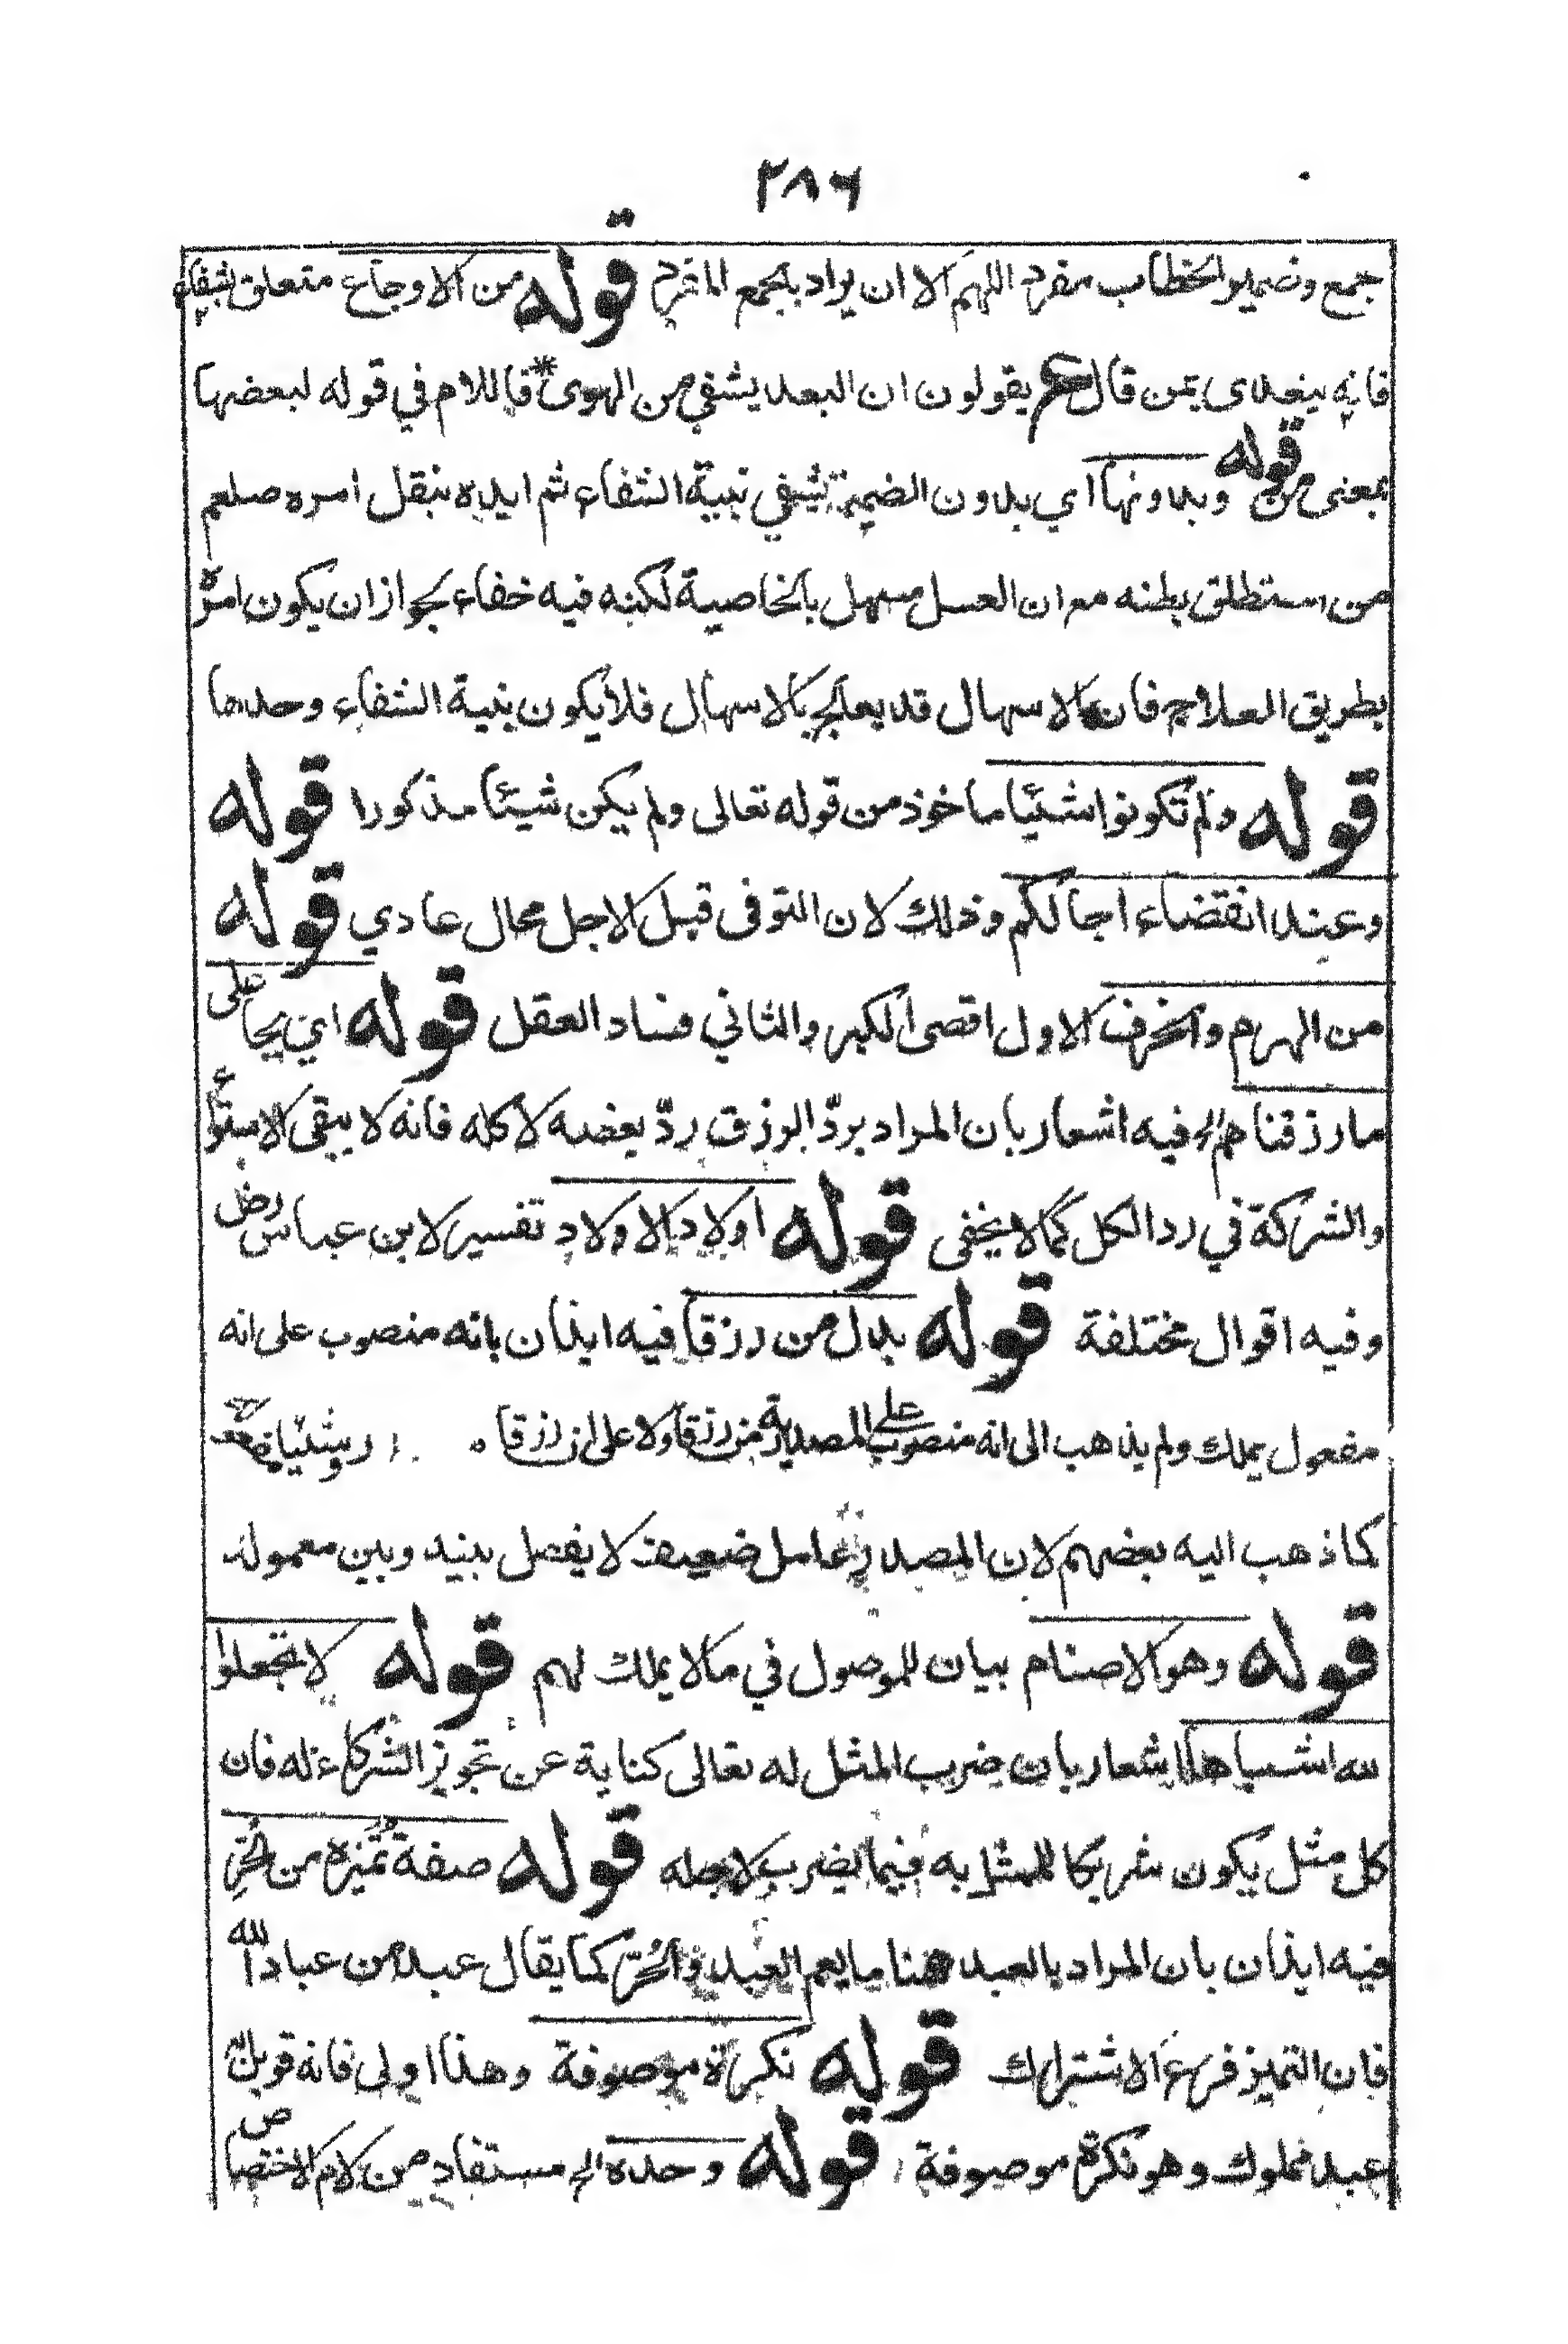 ٢٨٦
جمع وضمير الخطاب مفرد اللهم الا ان يراد بالجمع المفرد قوله من الاوجاع متعلق بشفاء
فانه يتعدى بمن قال ع يقولون ان البعد يشفي من الهوى * فاللام في قوله لبعضها
بمعنى من قوله وبدونها اي بدون الضميمة يشفي نبية الشفاء ثم ايده بنقل امره صلعم
من استطلق بطنه مع ان العسل مسهل بالخاصية لكنه فيه خفاء لجواز ان يكون امره
بطريق العلاج فان الاسهال قد يعالج بالاسهال فلا يكون بنية الشفاء وحدها
قوله ولم تكونوا شيئا ماخوذ من قوله تعالى ولم يكن شيئا مذكورا قوله
وعند انقضاء اجالكم وذلك لان التوفى قبل الاجل محال عادي قوله
من الهرم والخرف الاول اقصى الكبر والثاني فساد العقل قوله اي بجاعلى
ما رزقناهم الخ فيه اشعار بان المراد بردّ الرزق ردّ بعضه لا كله فانه لا يبقى الاستواء
والشركة في رد الكل كما لا يخفى قوله اولاد الاولاد تفسير لابن عباس رض
وفيه اقوال مختلفة قوله بدل من رزقا فيه ايذان بانه منصوب على انه
مفعول يملك ولم يذهب الى انه منصوب على المصدرية من رزقا ولا على ان رزقا
كما ذهب اليه بعضهم لان المصدر عامل ضعيف لا يفصل بينه وبين معموله
قوله وهو الاصنام بيان للموصول في ما لا يملك لهم قوله لا تجعلوا
لله اشباها اشعار بان ضرب المثل له تعالى كناية عن تجويز الشركاء له فان
كل مثل يكون شريكا للمثل به فيما يضرب لاجله قوله صفة تميزه من الحر
فيه ايذان بان المراد بالعبد هنا ما يعم العبد والحر كما يقال عبد من عباد الله
فان التميز فرع الاشتراك قوله نكرة موصوفة وهذا اولى فانه قوبل
عبد مملوك وهو نكرة موصوفة قوله وحده الخ مستفاد من لام الاختصاص